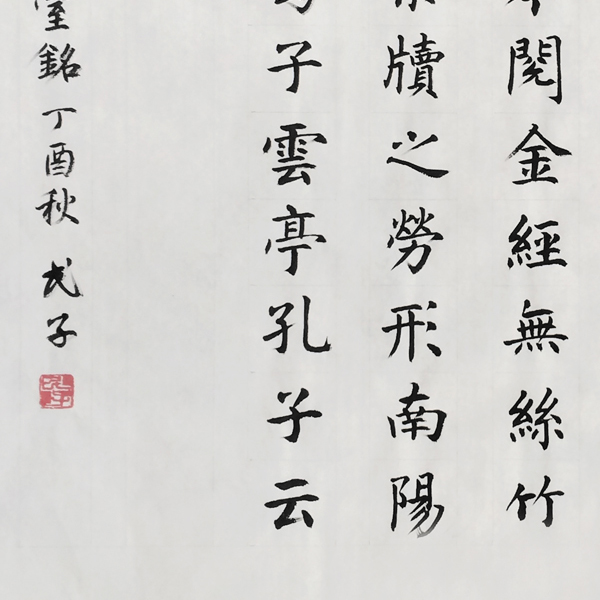 閱金經無絲竹
牘之勞形南陽
子雲亭孔子云
室銘丁酉秋
子